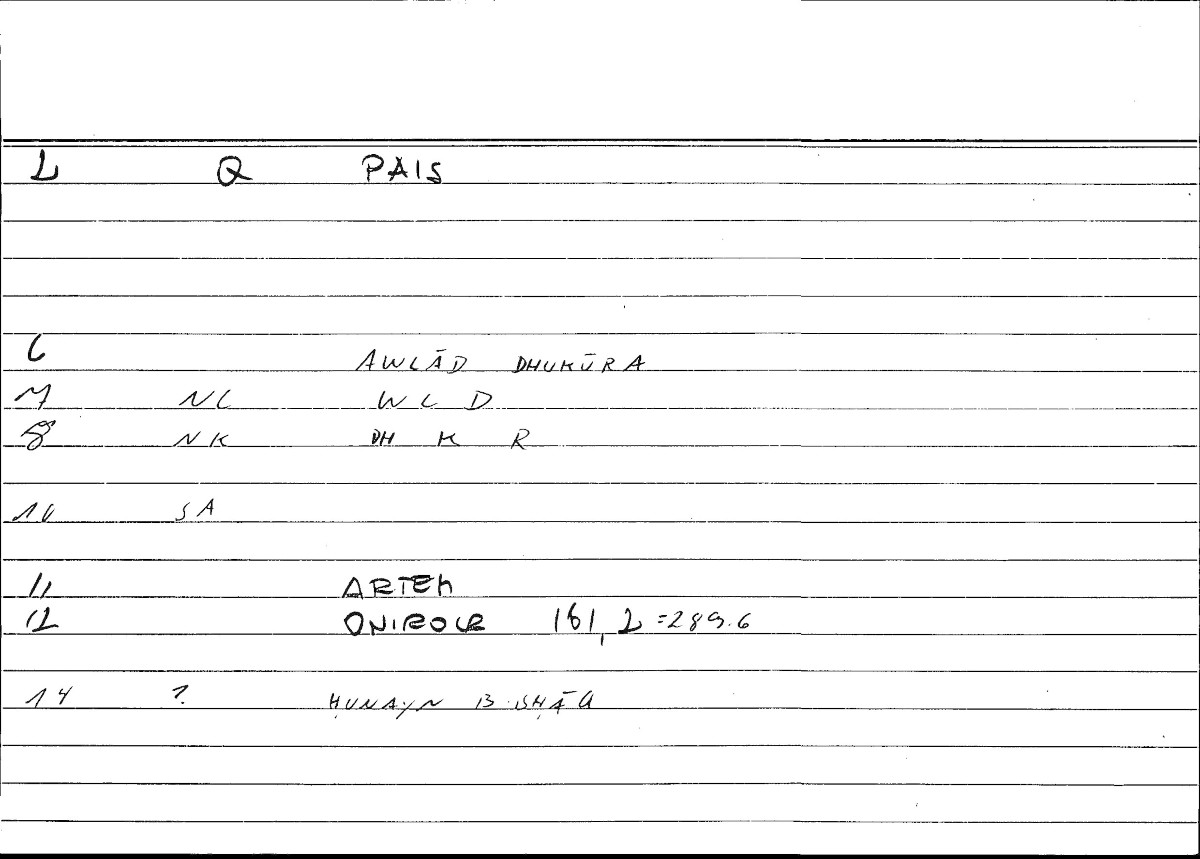 1 Q PAIS
6 AWLĀD DHUKŪRA
7 NC WLD
8 NK DH K R
10 SA
11 ARTEM
12 ONIROCR 161,2=289.6
14 ? ḤUNAYN B ISḤĀQ